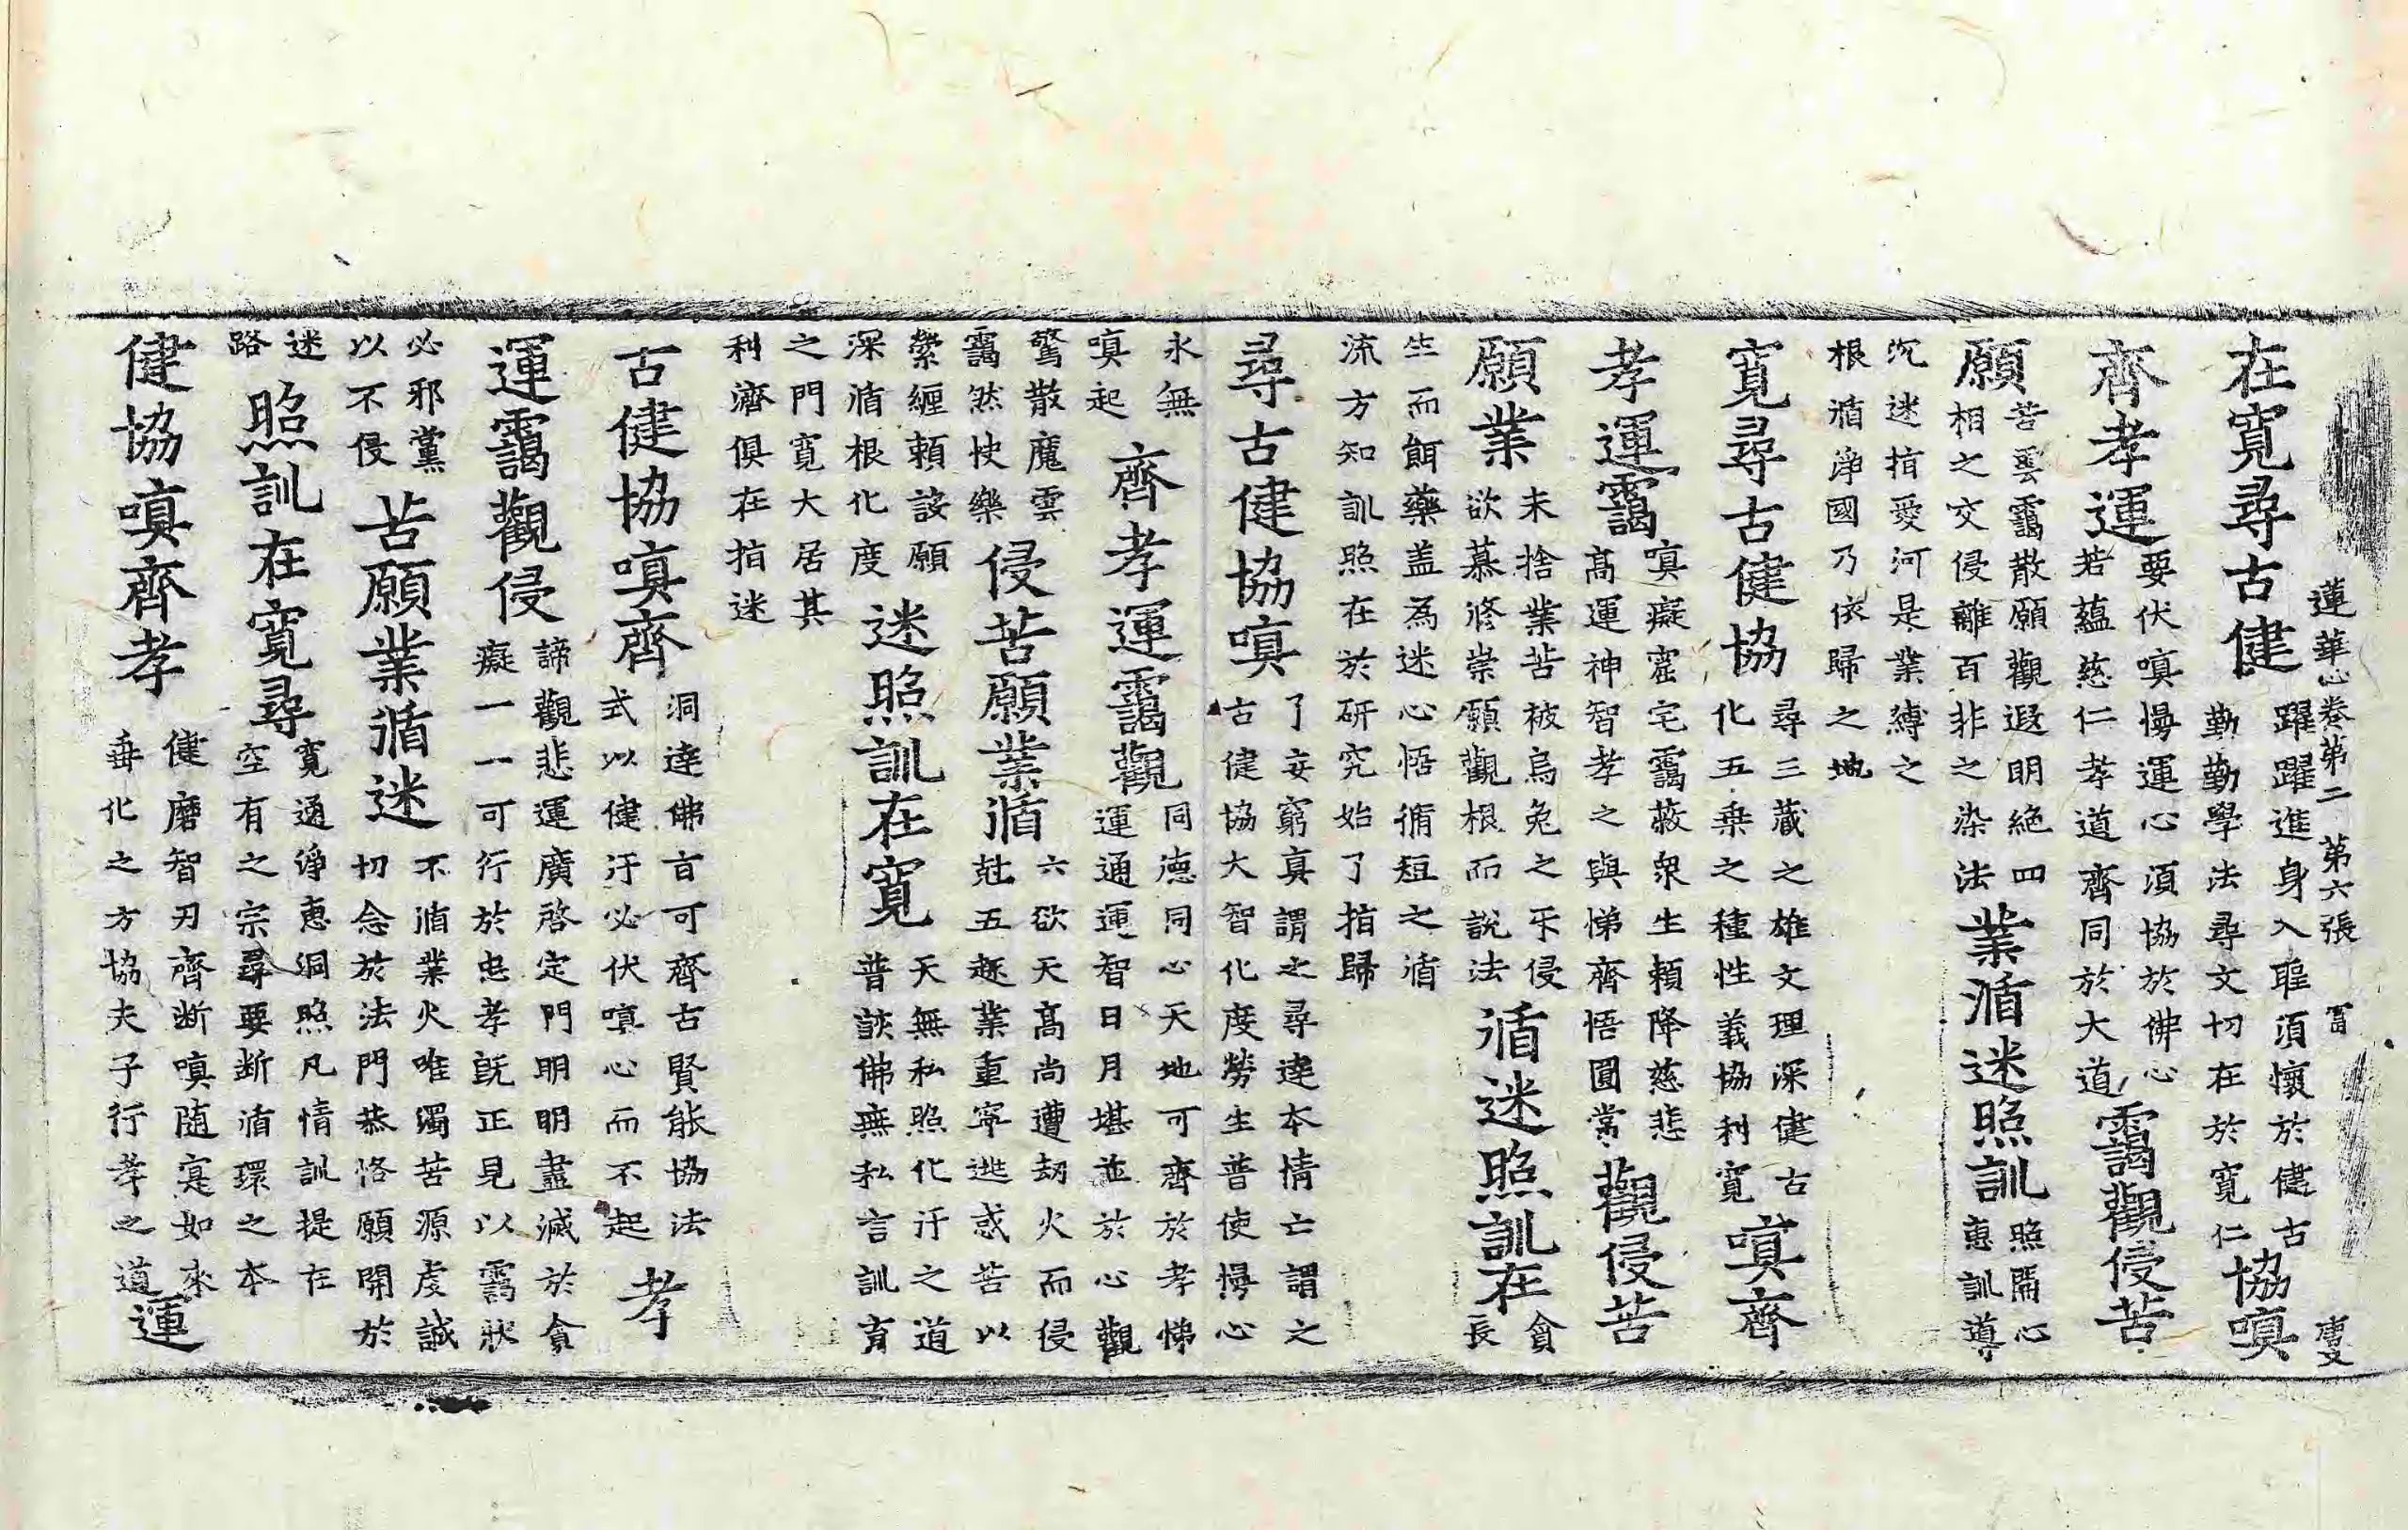 蓮華心卷第二 第六張 富
在寬尋古健
躍躍進身入聖須懷於健古
勤勤學法尋文切在於寬仁
協嗔
齊孝運
要伏嗔慢運心須協於佛心
若蘊慈仁孝道齊同於大道
靄觀侵苦
願
苦雲靄散願觀遐明絕四
相之交侵離百非之染法
業循迷照訓
照闇心
惠訓導
沉迷指愛河是業縛之
根循淨國乃依歸之地
寬尋古健協
尋三藏之雄文理深健古
化五乗之種性義協利寬
嗔齊
孝運靄
嗔癡窟宅靄蔽衆生賴降慈悲
髙運神智孝之與悌齊悟圓常
觀侵苦
願業
未捨業苦被烏兔之牙侵
欲慕修崇願觀根而說法
循迷照訓在
貪
長
生而餌藥盖為迷心悟脩短之循
流方知訓照在於研究始了指歸
尋古健協嗔
了妄窮真謂之尋達本情亡謂之
古健協大智化度勞生普使慢心
永無
嗔起
齊孝運靄觀
同德同心天地可齊於孝悌
運通運智日月堪並於心觀
驚散魔雲
靄然快樂
侵苦願業循
六欲天髙尚遭劫火而侵
尅五趣業重寧逃惑苦以
縈纏賴該願
深循根化度
迷照訓在寬
天無私照化汙之道
普談佛無私言訓育
之門寬大居其
利濟俱在指迷
古健協嗔齊
洞達佛言可齊古賢能協法
式以健汙必伏嗔心而不起
孝
運靄觀侵
諦觀悲運廣啓定門明明盡滅於貪
癡一一可行於忠孝旣正見以靄狀
必邪黨
以不侵
苦願業循迷
不循業火唯濁苦源虔誠
切念於法門恭恪願開於
迷
路
照訓在寬尋
寬通淨惠洞照凡情訓提在
空有之宗尋要断循環之本
健協嗔齊孝
健磨智刃齊断嗔随寔如來
垂化之方協夫子行孝之道
運